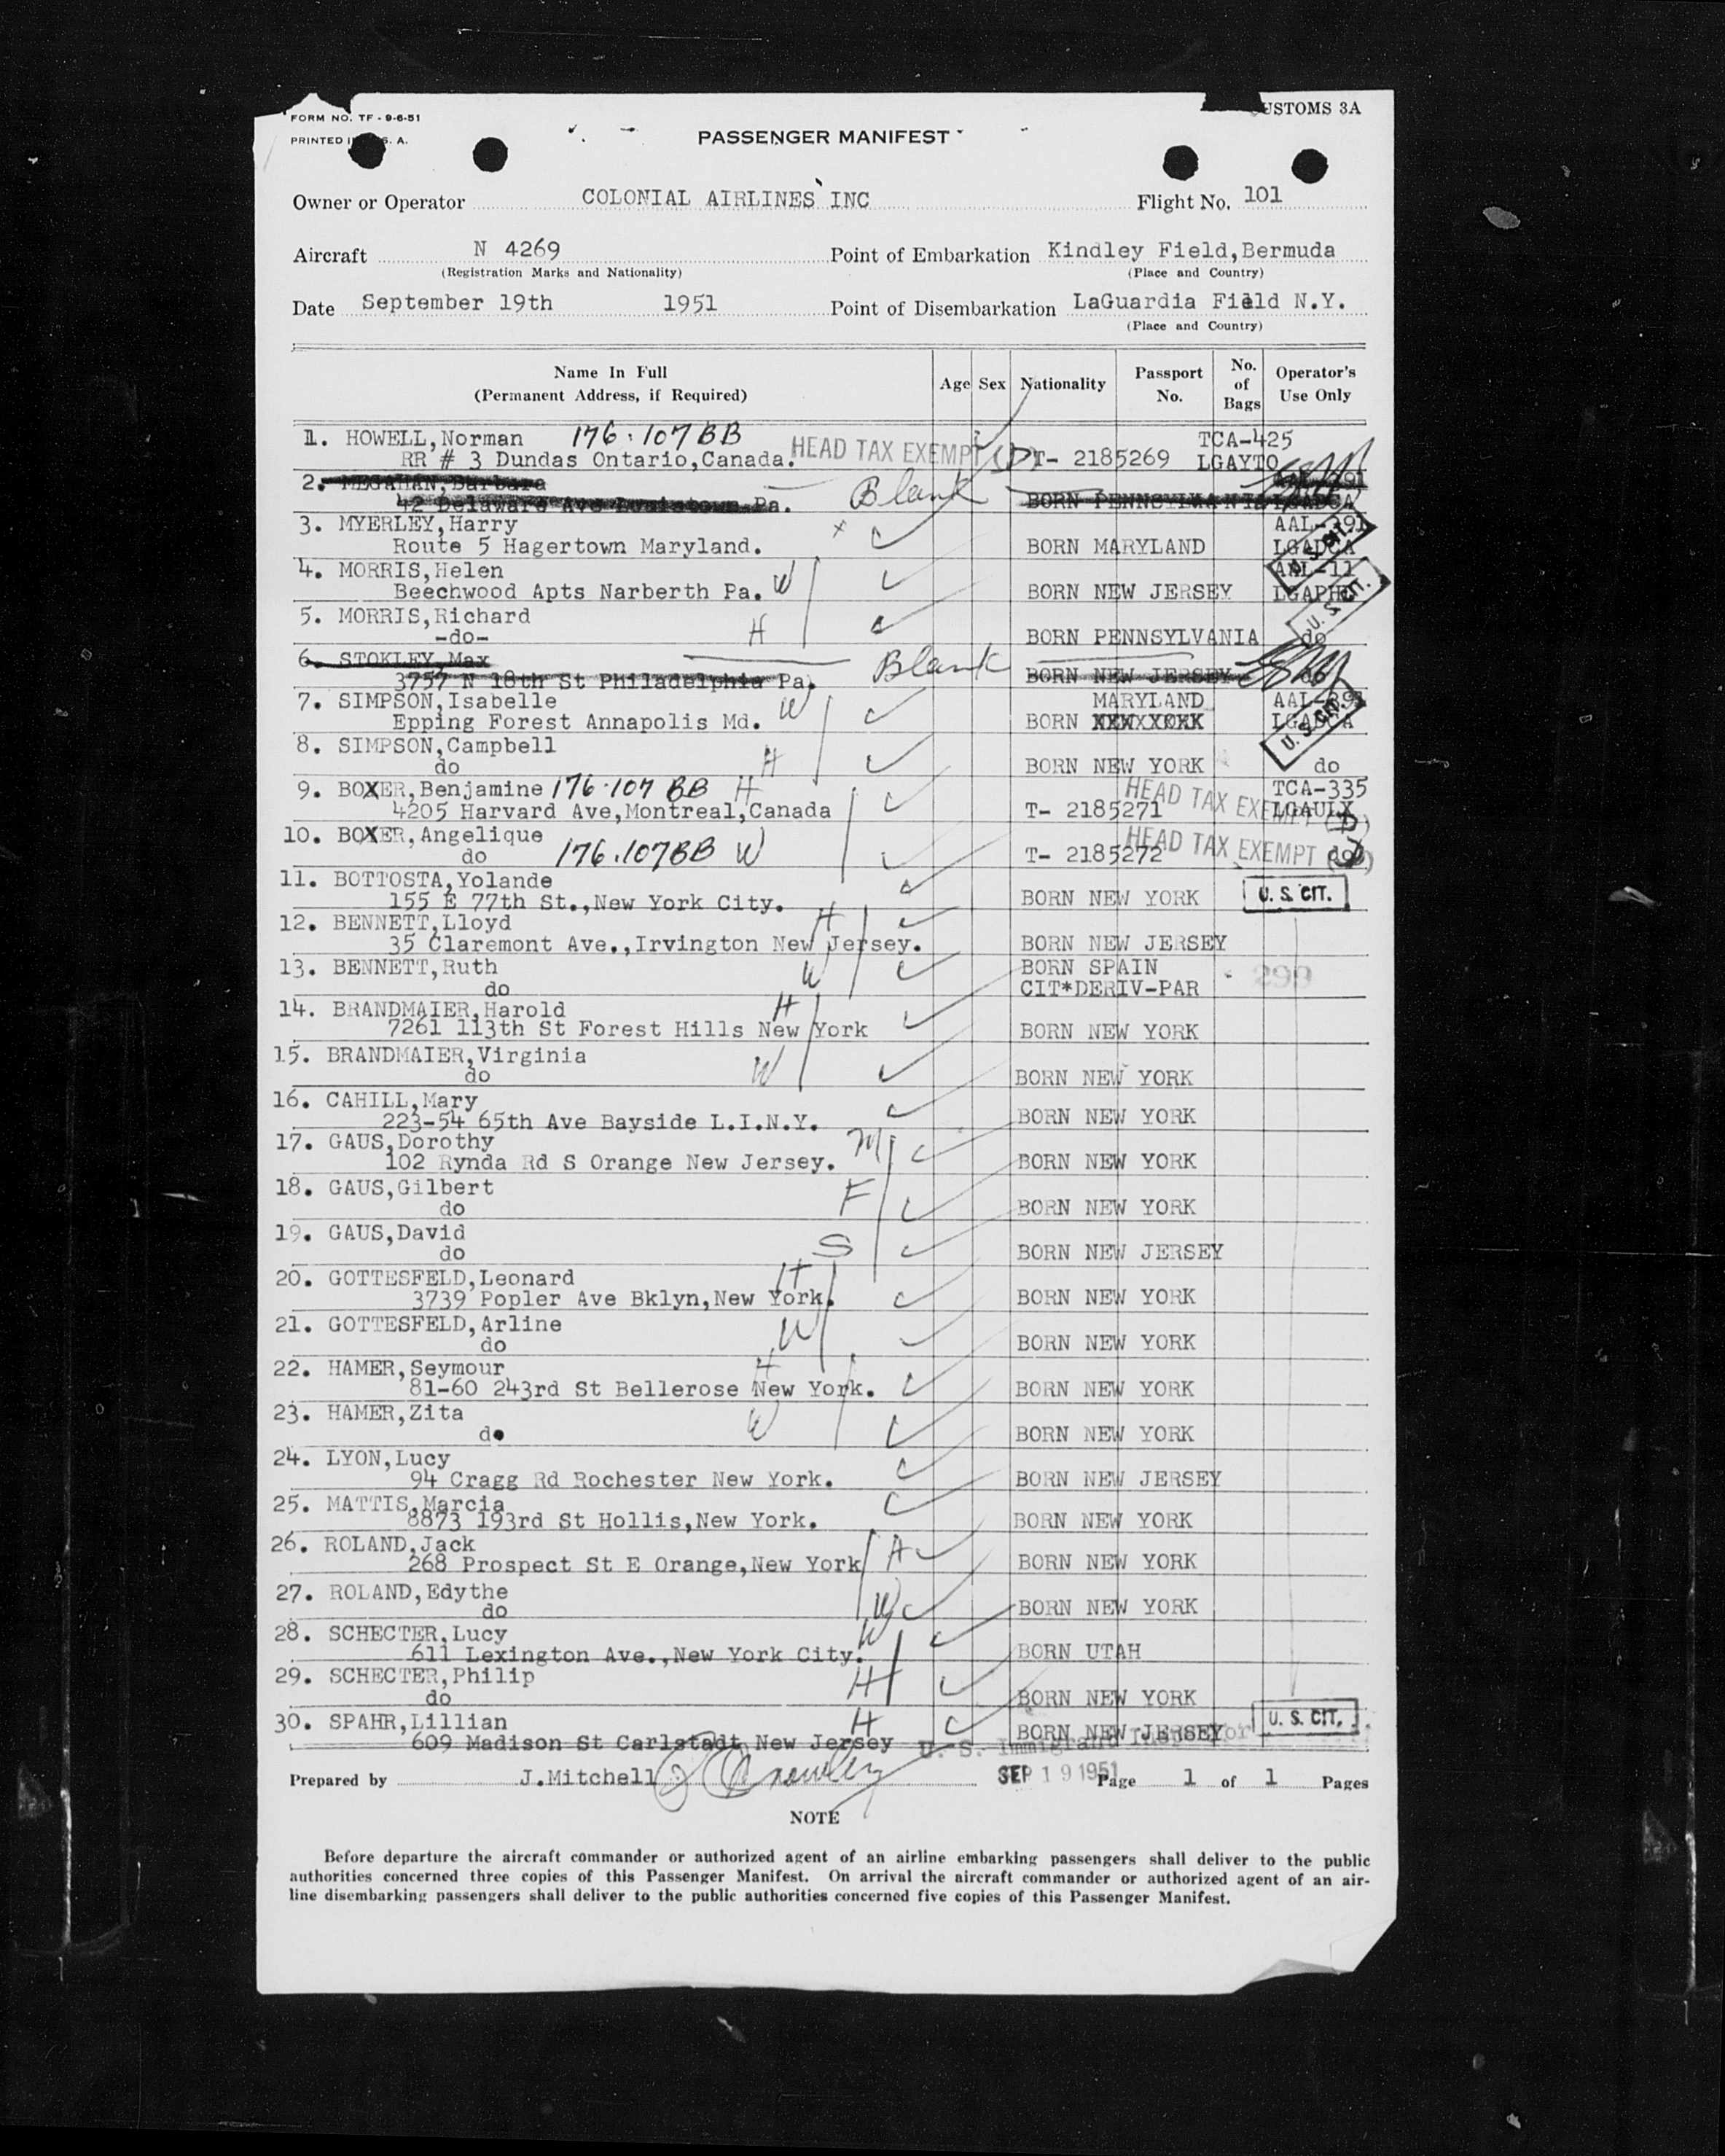 FORM NO. TF - 9-6-51
USTOMS 3A
PRINTED I S. A.
PASSENGER MANIFEST
Owner or Operator COLONIAL AIRLINES INC Flight No. 101
Aircraft N 4269 Point of Embarkation Kindley Field,Bermuda
(Registration Marks and Nationality) (Place and Country)
Date September 19th 1951 Point of Disembarkation LaGuardia Field N.Y.
(Place and Country)
Name In Full
(Permanent Address, if Required)
Age Sex Nationality Passport No. No. of Bags Operator's Use Only
1. HOWELL,Norman 176.107BB TCA-425
RR # 3 Dundas Ontario,Canada. HEAD TAX EXEMPT (D) T- 2185269 LGAYTO
2. MEGAHAN,Barbara Blank
42 Delaware Ave Pa. BORN PENNSYLVANIA LGADCA
3. MYERLEY,Harry AAL-391
Route 5 Hagertown Maryland. BORN MARYLAND LGADCA
U. S. CIT.
4. MORRIS,Helen W AAL-11
Beechwood Apts Narberth Pa. BORN NEW JERSEY LGAPHL
U. S. CIT.
5. MORRIS,Richard
-do- H BORN PENNSYLVANIA do
6. STOKLEY,Max Blank
3757 N 18th St Philadelphia Pa. BORN NEW JERSEY do
7. SIMPSON,Isabelle W MARYLAND AAL-391
Epping Forest Annapolis Md. BORN NEW YORK LGADCA
U. S. CIT.
8. SIMPSON,Campbell
do H BORN NEW YORK do
9. BOXER,Benjamine 176.107 BB H HEAD TAX EXEMPT (D) TCA-335
4205 Harvard Ave,Montreal,Canada T- 2185271 LGAULX
10. BOXER,Angelique HEAD TAX EXEMPT (D)
do 176.107BB W T- 2185272 do
11. BOTTOSTA,Yolande
155 E 77th St.,New York City. BORN NEW YORK U. S. CIT.
12. BENNETT,Lloyd H
35 Claremont Ave.,Irvington New Jersey. BORN NEW JERSEY
13. BENNETT,Ruth W BORN SPAIN 299
do CIT*DERIV-PAR
14. BRANDMAIER,Harold H
7261 113th St Forest Hills New York BORN NEW YORK
15. BRANDMAIER,Virginia
do W BORN NEW YORK
16. CAHILL,Mary
223-54 65th Ave Bayside L.I.N.Y. BORN NEW YORK
17. GAUS,Dorothy M
102 Rynda Rd S Orange New Jersey. BORN NEW YORK
18. GAUS,Gilbert F
do BORN NEW YORK
19. GAUS,David
do S BORN NEW JERSEY
20. GOTTESFELD,Leonard H
3739 Popler Ave Bklyn,New York. BORN NEW YORK
21. GOTTESFELD,Arline W
do BORN NEW YORK
22. HAMER,Seymour H
81-60 243rd St Bellerose New York. BORN NEW YORK
23. HAMER,Zita W
do BORN NEW YORK
24. LYON,Lucy
94 Cragg Rd Rochester New York. BORN NEW JERSEY
25. MATTIS,Marcia
8873 193rd St Hollis,New York. BORN NEW YORK
26. ROLAND,Jack H
268 Prospect St E Orange,New York BORN NEW YORK
27. ROLAND,Edythe W
do BORN NEW YORK
28. SCHECTER,Lucy W
611 Lexington Ave.,New York City. BORN UTAH
29. SCHECTER,Philip H
do BORN NEW YORK
30. SPAHR,Lillian H U. S. CIT.
609 Madison St Carlstadt New Jersey BORN NEW JERSEY
U. S. Immigrant Inspector
Prepared by J.Mitchell SEP 19 1951 Page 1 of 1 Pages
NOTE
Before departure the aircraft commander or authorized agent of an airline embarking passengers shall deliver to the public
authorities concerned three copies of this Passenger Manifest. On arrival the aircraft commander or authorized agent of an air-
line disembarking passengers shall deliver to the public authorities concerned five copies of this Passenger Manifest.